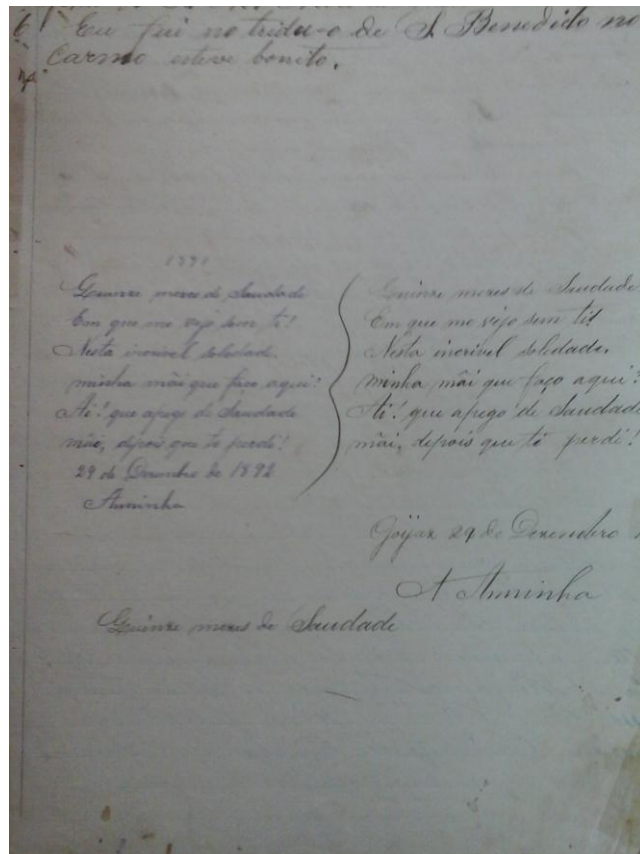 6 Eu fui no triduo de S. Benedido no
Carmo esteve bonito.
189
Quinze mezes de Saudade
Em que me vejo sem ti!
Nesta incrivel soledade.
minha mãi que faço aqui?
Ai! que apego de Saudade
mãe, depois que te perdi!
29 de Dezembro de 1892
Anninha
Quinze mezes de Saudade
Em que me vejo sem ti!
Nesta incrivel soledade.
minha mãi que faço aqui?
Ai! que apego de Saudade
mãi, depois que te perdi!
Goÿaz 29 de Dezembro
A Anninha
Quinze mezes de Saudade